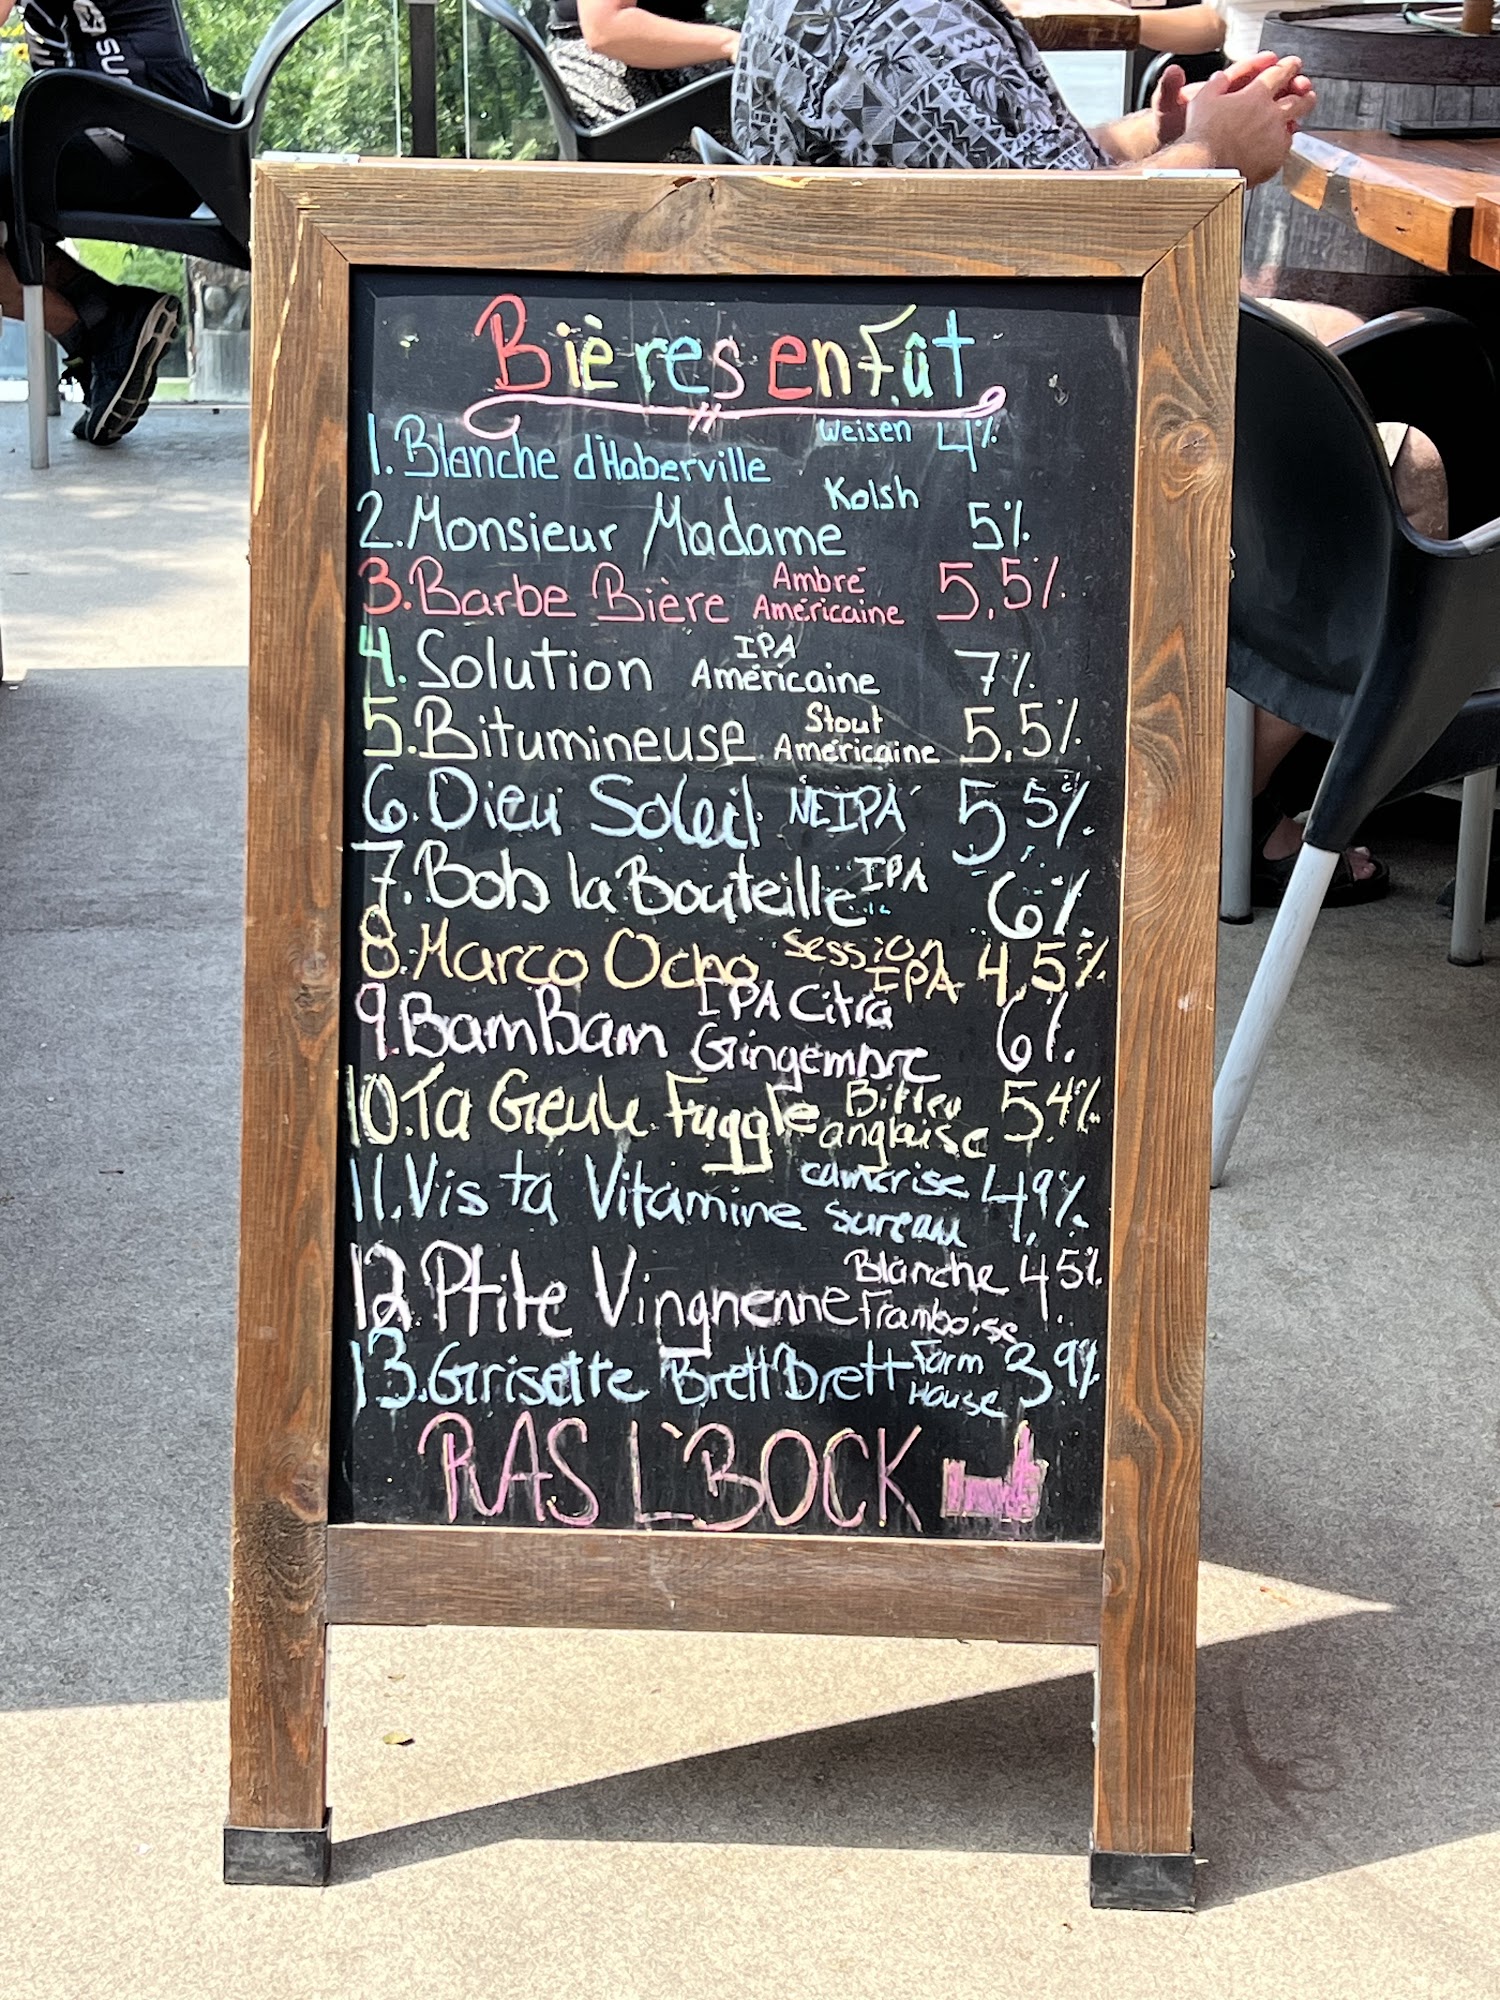 SU
Bières en Fût
1. Blanche d'Haberville Weisen 4%
2. Monsieur Madame Kolsh 5%
3. Barbe Bière Ambré Américaine 5,5%
4. Solution IPA Américaine 7%
5. Bitumineuse Stout Américaine 5,5%
6. Dieu Soleil NEIPA 5,5%
7. Bob la Bouteille IPA 6%
8. Marco Ocho Session IPA 4,5%
9. BamBam IPA Citra Gingembre 6%
10. Ta Geule Fuggle Bitter anglaise 5.4%
11. Vis ta Vitamine camerise sureau 4,9%
12. Ptite Vingnenne Blanche Framboise 4.5%
13. Grisette Brett Brett Farm House 3,9%
RAS L'BOCK